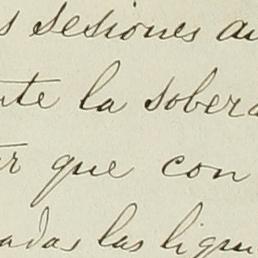 s sesiones au
nte la sobera
er que con
adas las ligu